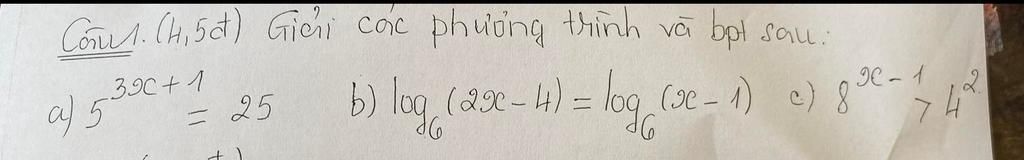 Câu 1. (4,5đ) Giải các phương trình và bpt sau:
a) 5^{3x+1} = 25 b) log_6 (2x-4) = log_6 (x-1) c) 8^{x-1} > 4^2